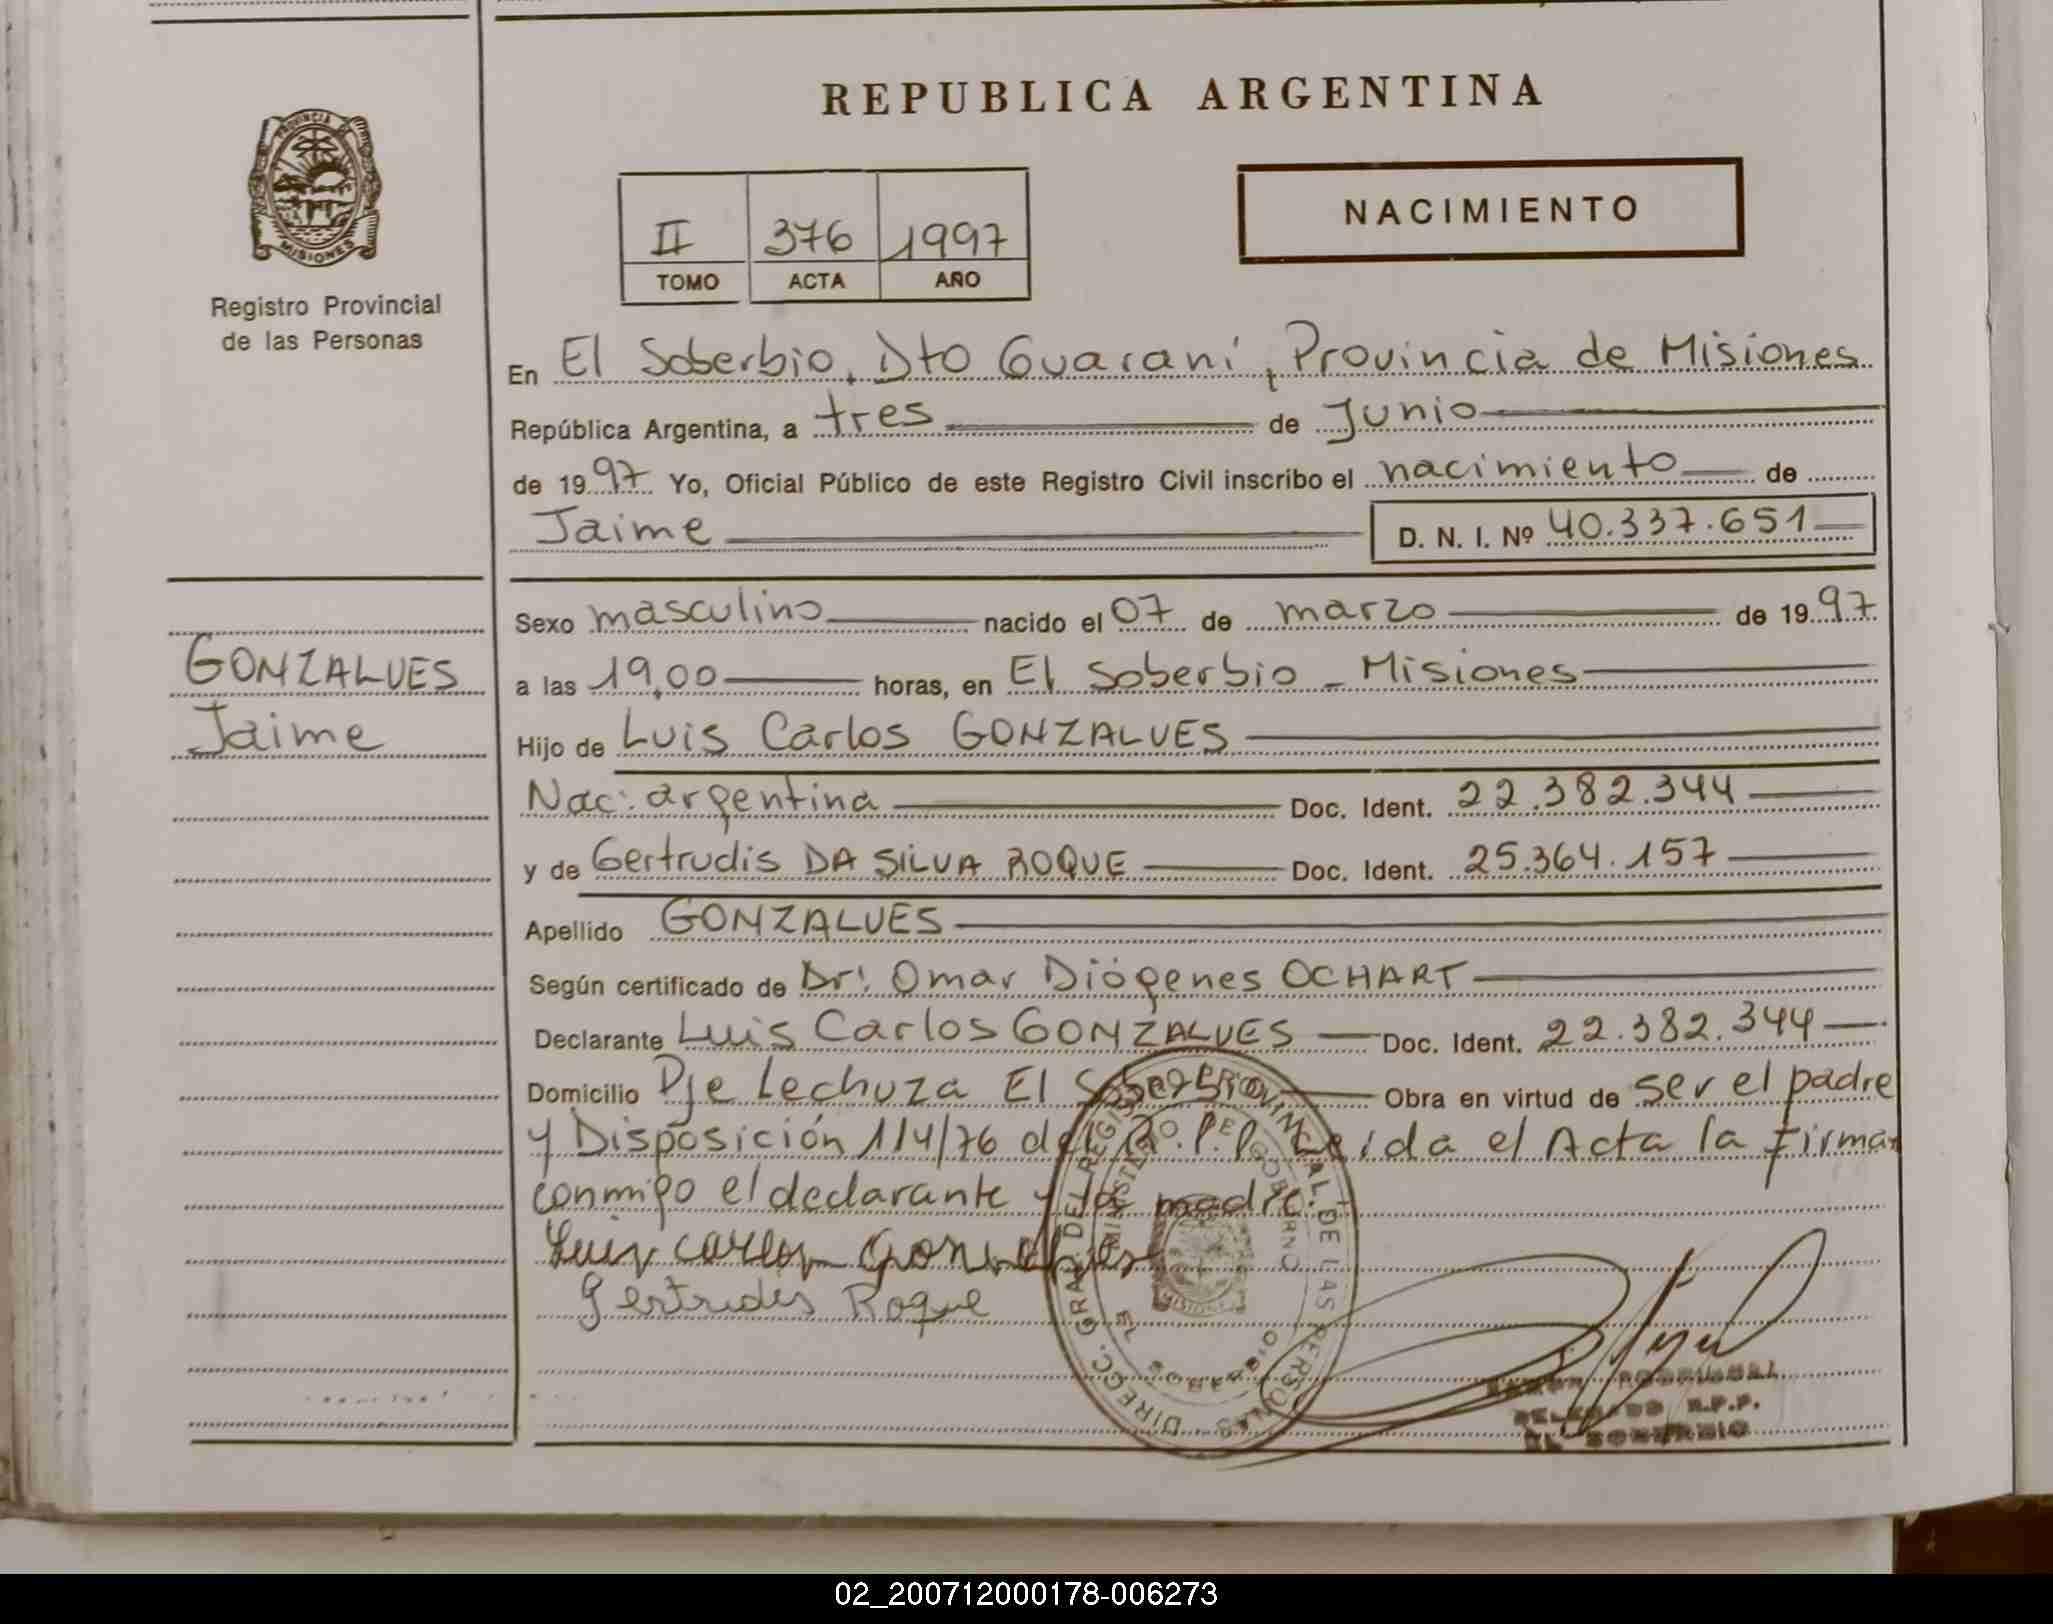 REPUBLICA ARGENTINA
PROVINCIA DE
MISIONES
Registro Provincial
de las Personas
II 376 1997
TOMO ACTA AÑO
NACIMIENTO
En El Soberbio, Dto Guaraní, Provincia de Misiones
República Argentina, a tres de Junio
de 1997 Yo, Oficial Público de este Registro Civil inscribo el nacimiento de
Jaime D. N. I. Nº 40.337.651
GONZALVES
Jaime
Sexo masculino nacido el 07 de marzo de 1997
a las 19,00 horas, en El Soberbio - Misiones
Hijo de Luis Carlos GONZALVES
Nac: argentina Doc. Ident. 22.382.344
y de Gertrudis DA SILVA ROQUE Doc. Ident. 25.364.157
Apellido GONZALVES
Según certificado de Dr: Omar Diógenes OCHART
Declarante Luis Carlos GONZALVES Doc. Ident. 22.382.344
Domicilio Pje Lechuza El Soberbio Obra en virtud de ser el padre
y Disposición 114/76 del R.P.P. Leida el Acta la firman
conmigo el declarante y la madre.
Luis Carlos Gonzalves
Gertrudes Roque
DIRECC. GRAL. DEL REGISTRO PROVINCIAL DE LAS PERSONAS
MINISTERIO DE GOBIERNO
EL SOBERBIO
MISIONES
R.P.P.
EL SOBERBIO
02_200712000178-006273